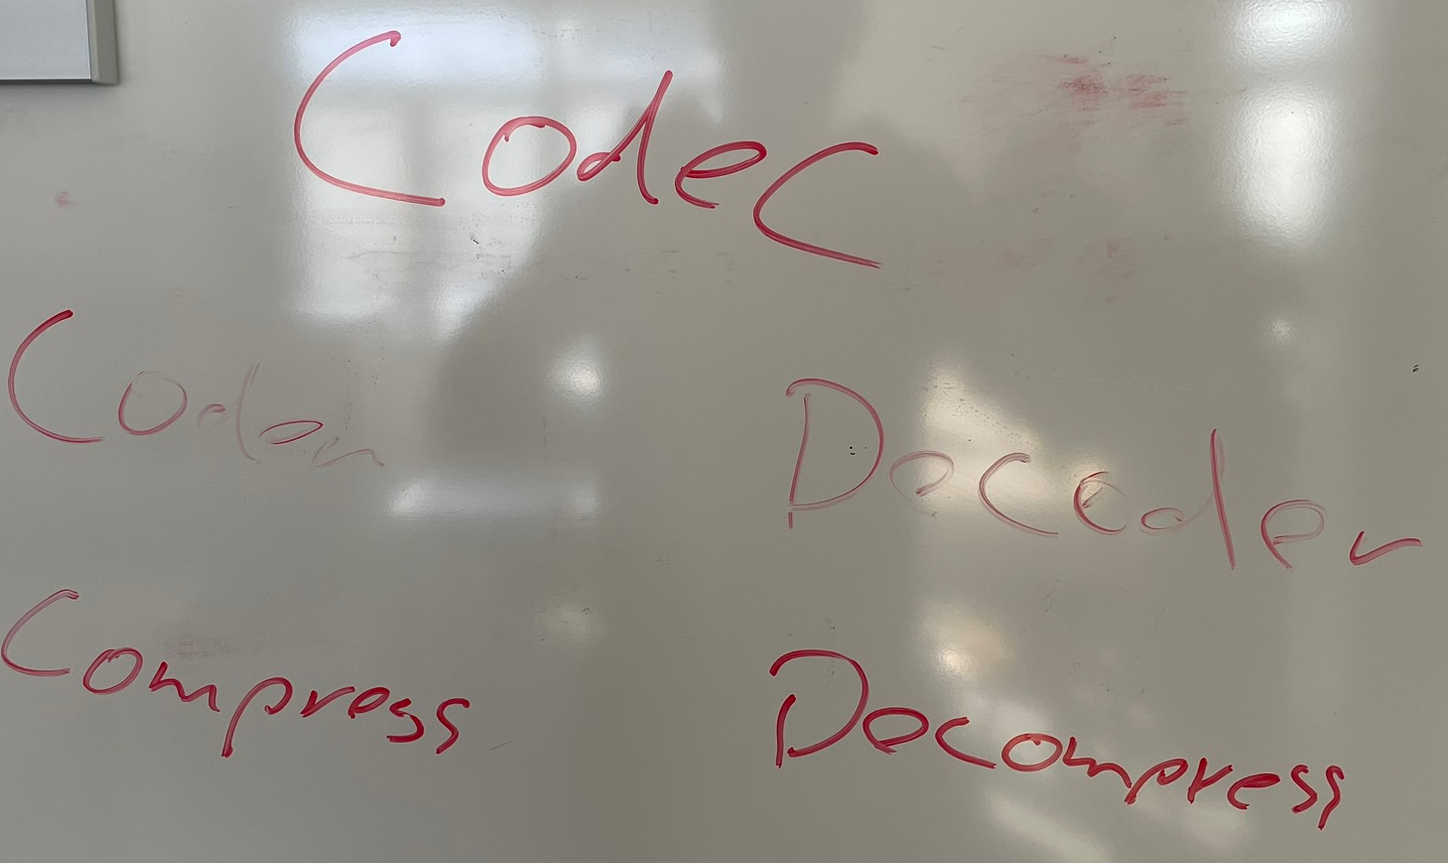 Codec
Coder Decoder
Compress Decompress